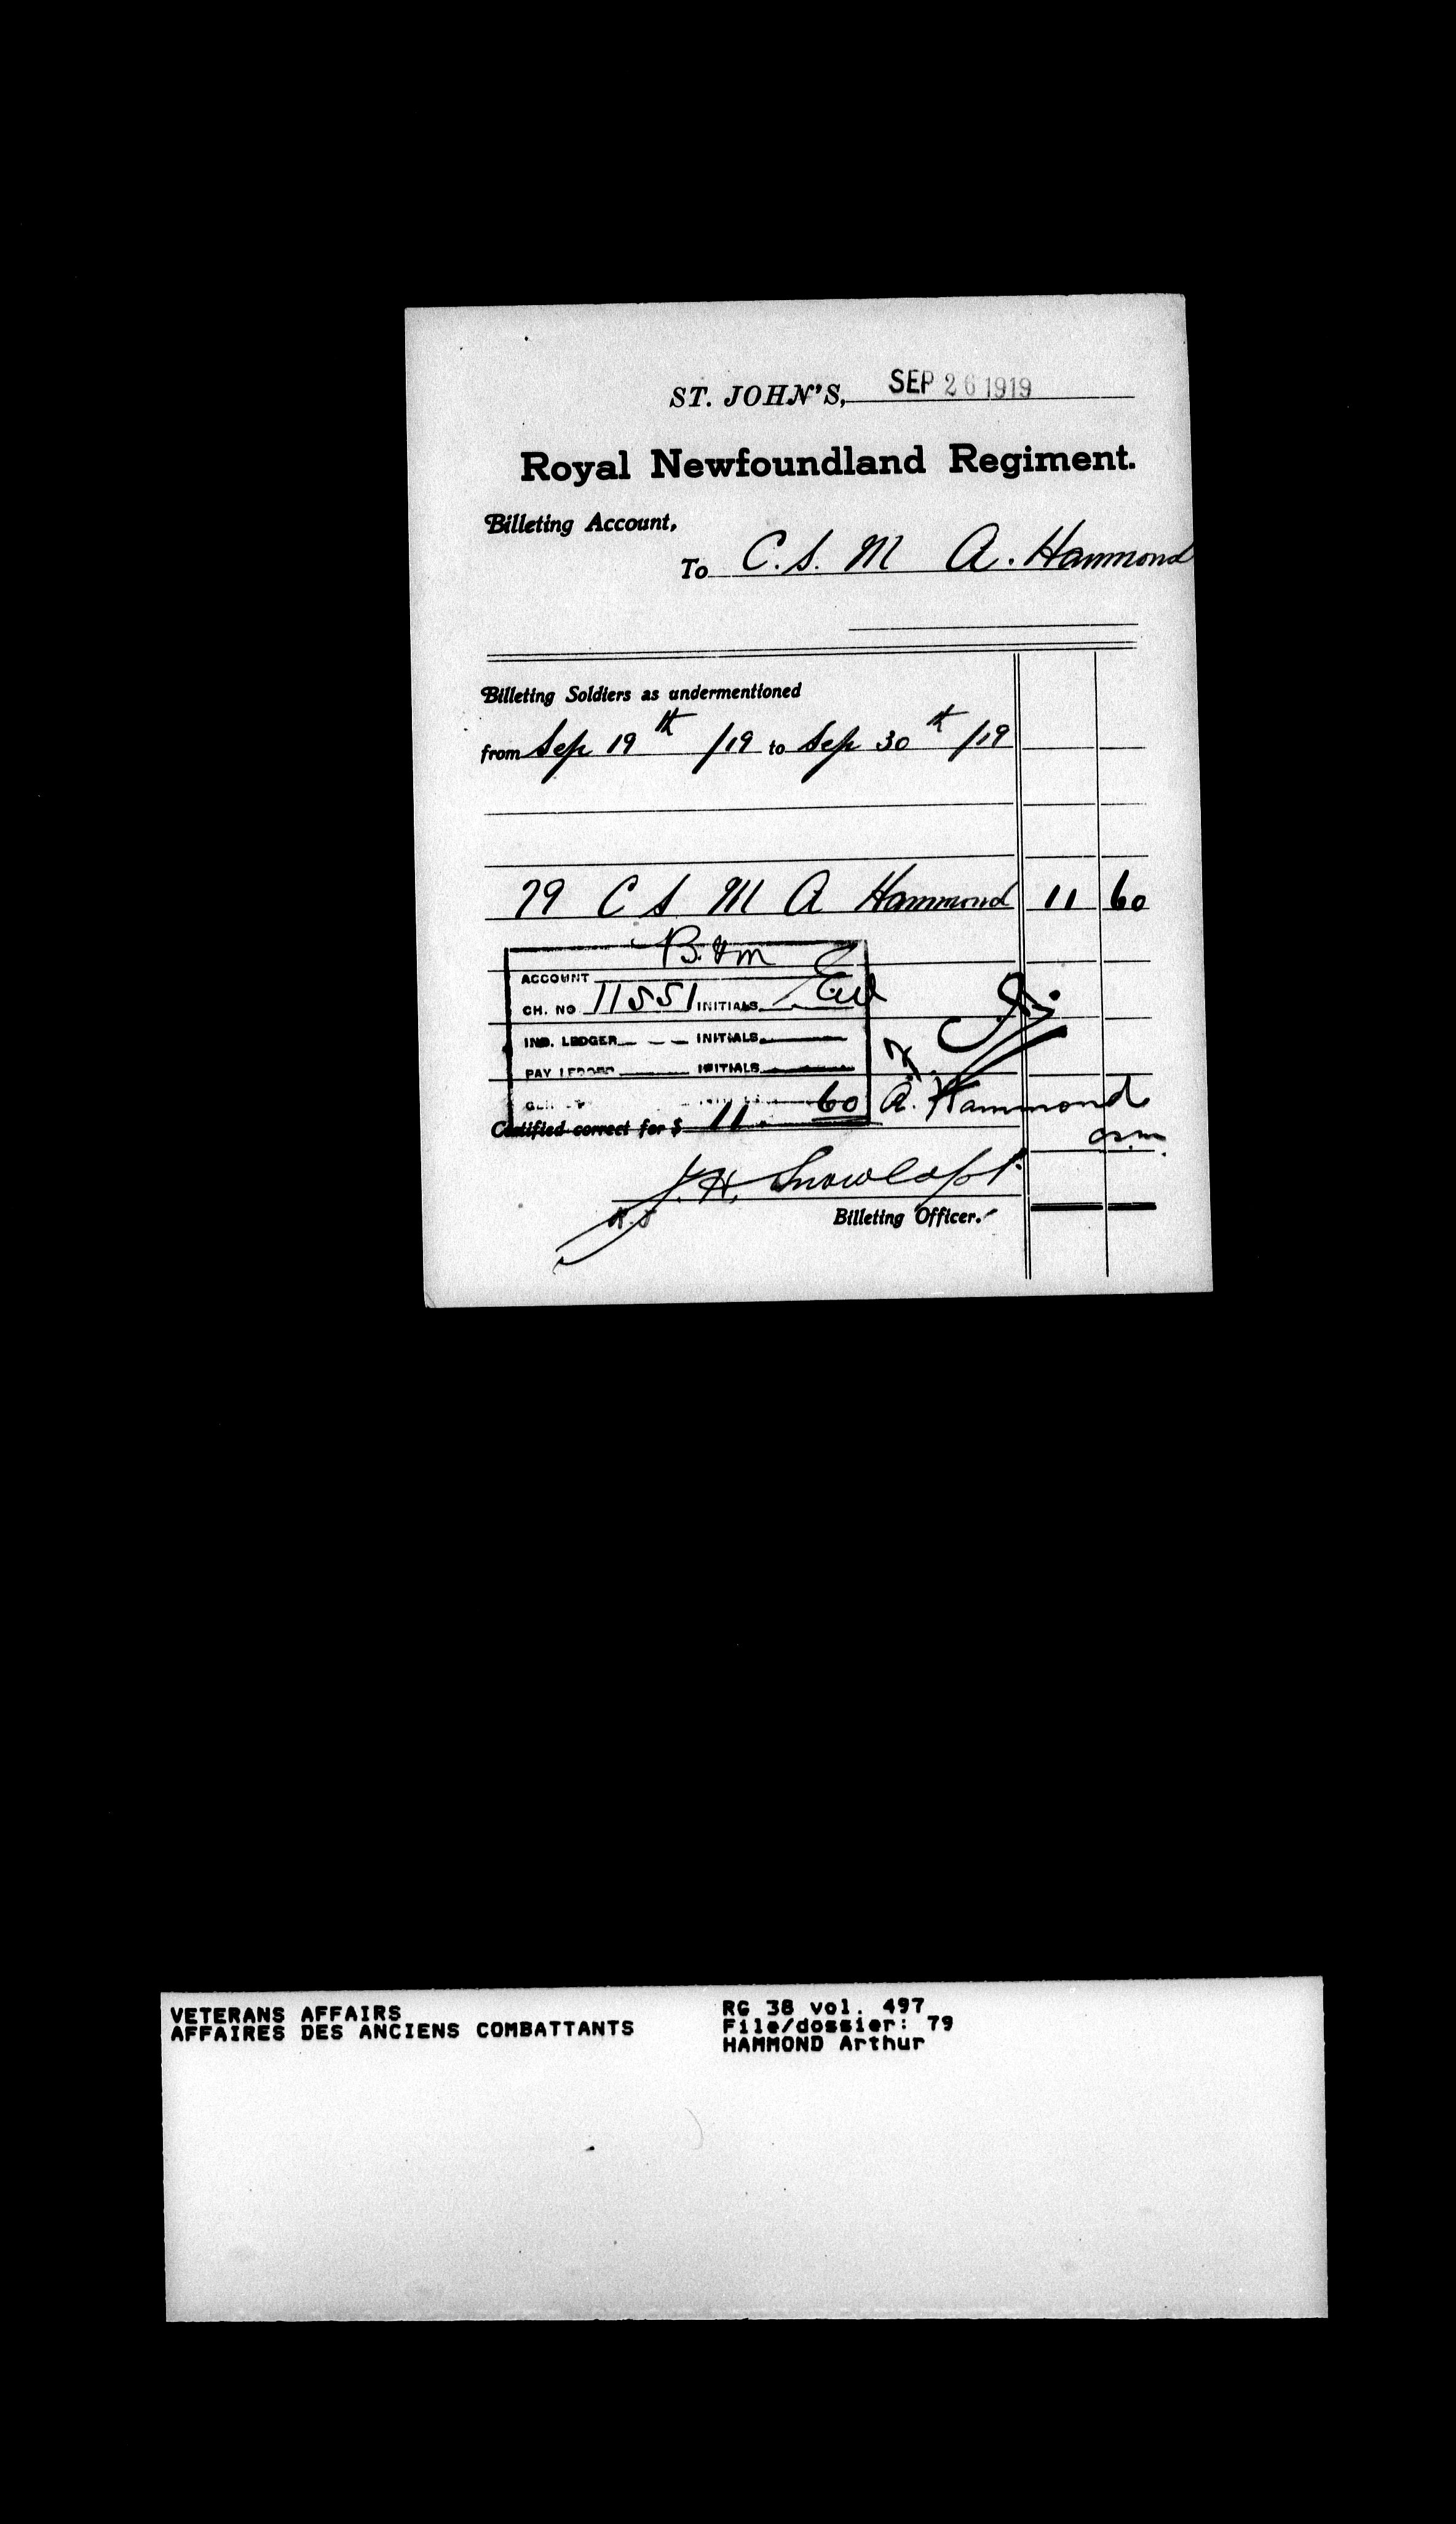 ST. JOHN'S, SEP 26 1919
Royal Newfoundland Regiment.
Billeting Account,
To C. S. M A. Hammond
Billeting Soldiers as undermentioned
from Sep 19th /19 to Sep 30th /19
79 C S M A Hammond 11 60
B. & M
ACCOUNT
CH. NO 11551 INITIALS
IND. LEDGER INITIALS
PAY LEDGER INITIALS
Certified correct for $ 11. 60 A. Hammond
J. H. Snow Capt.
Billeting Officer.
VETERANS AFFAIRS
AFFAIRES DES ANCIENS COMBATTANTS
RG 38 vol. 497
File/dossier: 79
HAMMOND Arthur